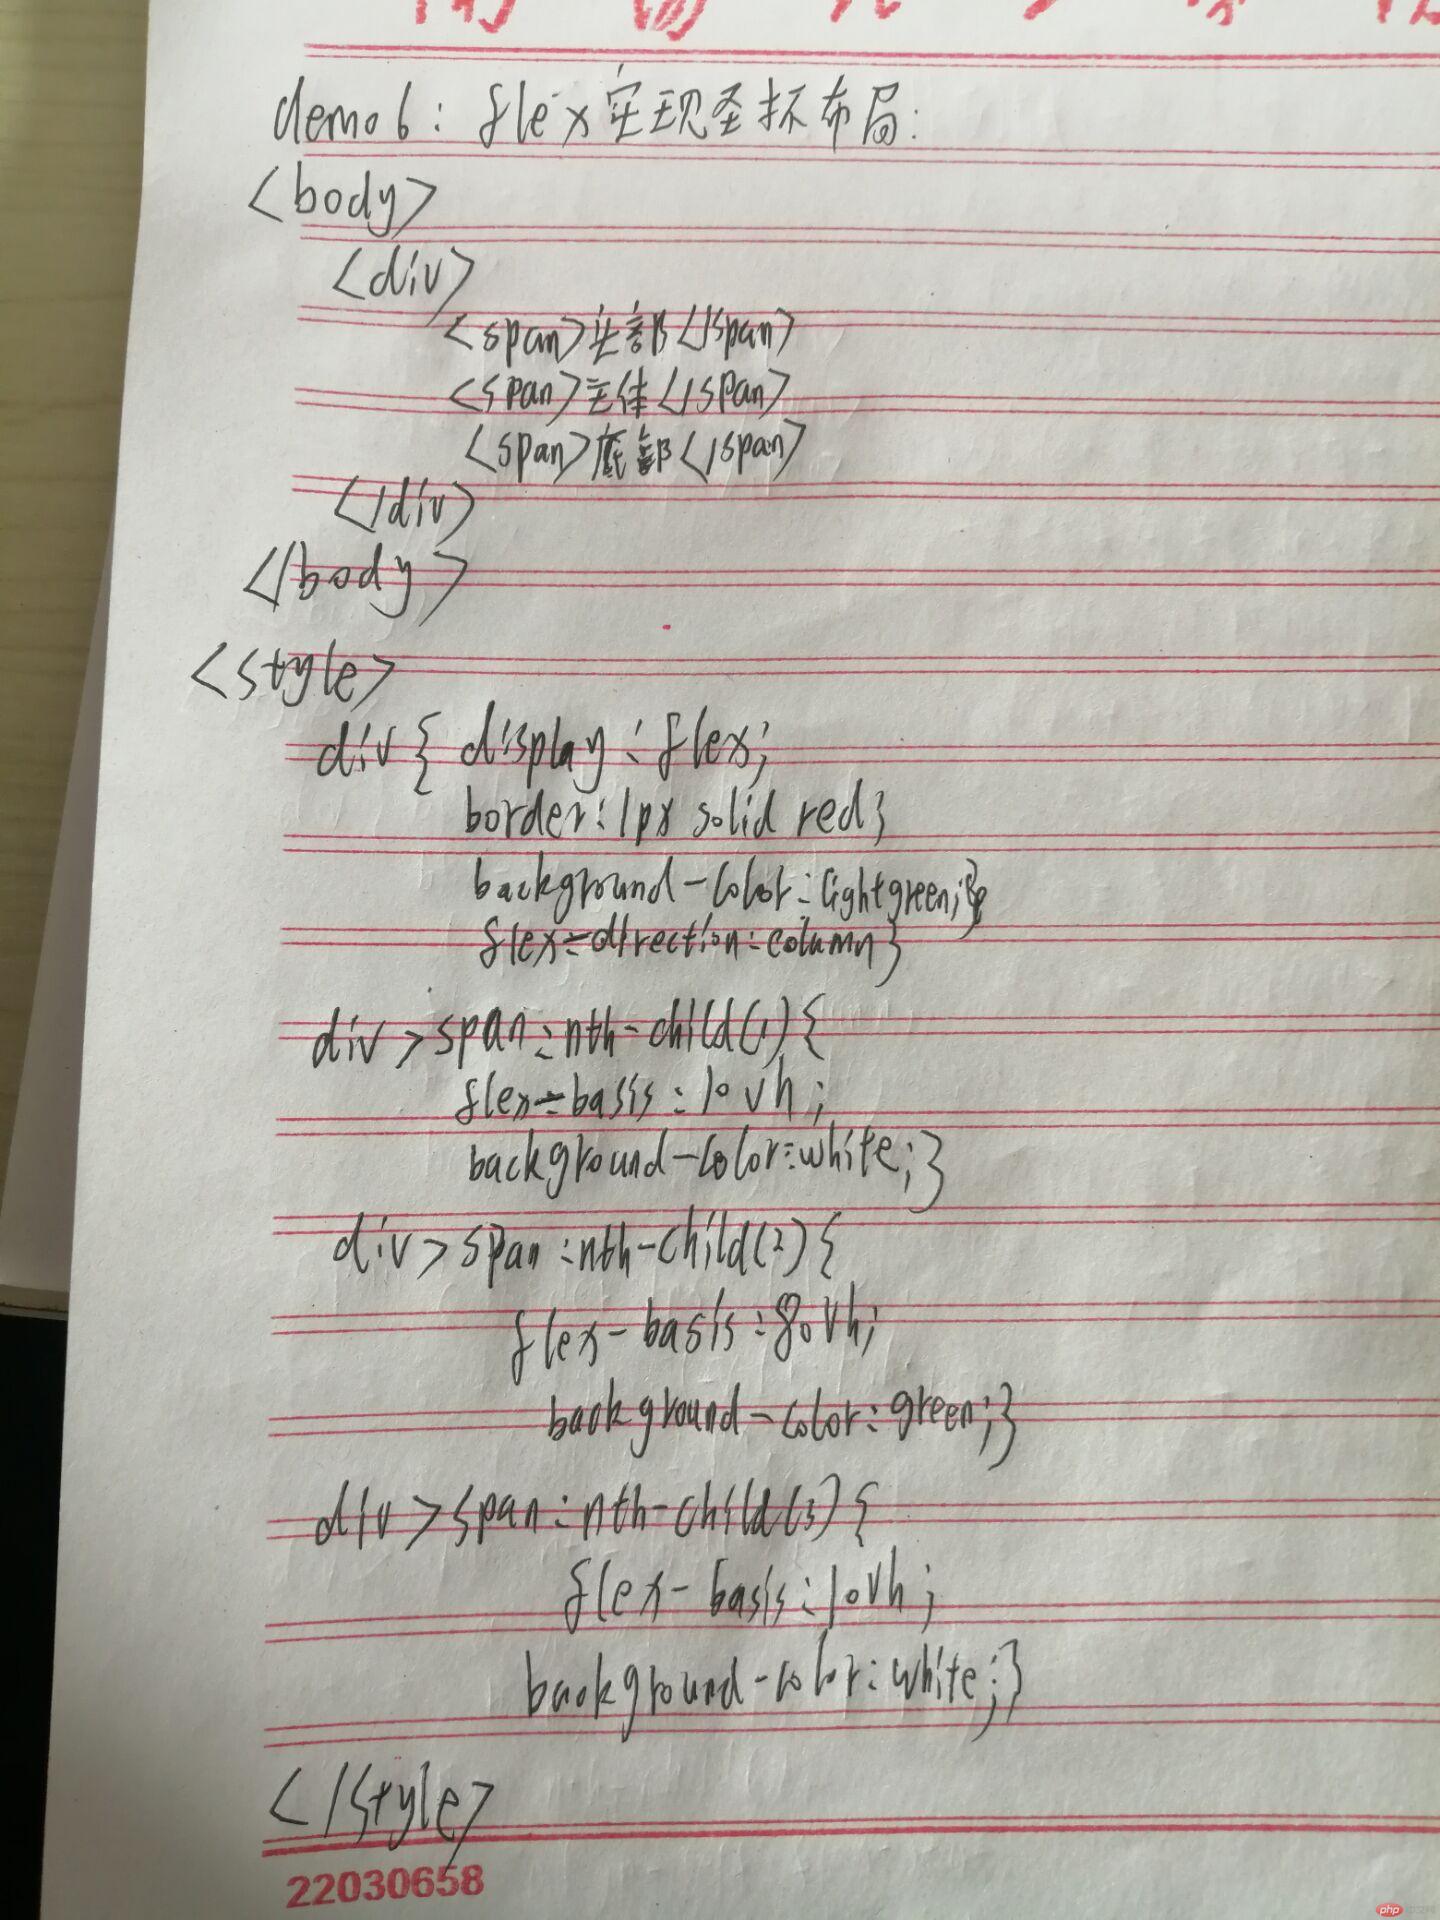 demo6: flex实现圣杯布局:
<body>
<div>
<span>头部</span>
<span>主体</span>
<span>底部</span>
</div>
</body>
<style>
div{ display:flex;
border:1px solid red;
background-color:lightgreen;
flex-direction:column}
div>span:nth-child(1){
flex-basis:10vh;
background-color:white;}
div>span:nth-child(2){
flex-basis:80vh;
background-color:green;}
div>span:nth-child(3){
flex-basis:10vh;
background-color:white;}
</style>
22030658
php